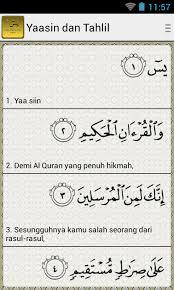 11:57
Yaasin dan Tahlil
يسٓ ۝١
1. Yaa siin
وَٱلْقُرْءَانِ ٱلْحَكِيمِ ۝٢
2. Demi Al Quran yang penuh hikmah,
إِنَّكَ لَمِنَ ٱلْمُرْسَلِينَ ۝٣
3. Sesungguhnya kamu salah seorang dari
rasul-rasul,
عَلَىٰ صِرَٰطٍ مُّسْتَقِيمٍ ۝٤